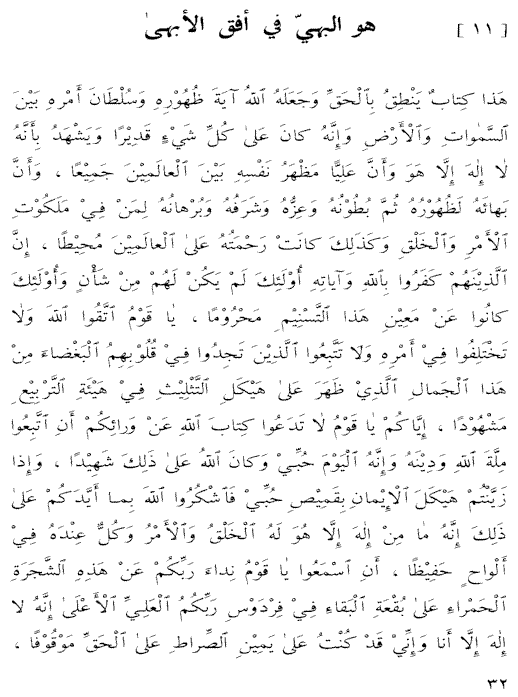 [ ١١ ] هو البهيّ في أفق الأبهىٰ
هَذا كِتابٌ يَنْطِقُ بِٱلْحَقِّ وَجَعَلَهُ ٱللهُ آيَةَ ظُهُوْرِهِ وَسُلْطَانَ أَمْرِهِ بَيْنَ
ٱلسَّمٰواتِ وَٱلْأَرْضِ وَإِنَّهُ كانَ عَلىٰ كُلِّ شَيْءٍ قَدِيْرًا وَيَشْهَدُ بِأَنَّهُ
لا إِلهَ إِلَّا هوَ وَأَنَّ عَلِيًّا مَظْهَرُ نَفْسِهِ بَيْنَ ٱلْعالَمِيْنَ جَمِيْعًا ، وَأَنَّ
بَهائَهُ لَظُهُوْرُهُ ثُمَّ بُطُوْنُهُ وَعِزُّهُ وَشَرَفُهُ وَبُرْهانُهُ لِمَنْ فِيْ مَلَكُوْتِ
ٱلْأَمْرِ وَٱلْخَلْقِ وَكَذلِكَ كانَتْ رَحْمَتُهُ عَلىٰ ٱلْعالَمِيْنَ مُحِيْطًا ، إِنَّ
ٱلَّذِيْنَهُمْ كَفَرُوا بِٱللهِ وَآياتِهِ أُوْلَئِكَ لَمْ يَكُنْ لَهُمْ مِنْ شَأْنٍ وَأُوْلَئِكَ
كانُوا عَنْ مَعِيْنِ هَذا ٱلتَّسْنِيْمِ مَحْرُوْمًا ، يا قَوْمُ ٱتَّقُوا ٱللهَ وَلا
تَخْتَلِفُوا فِيْ أَمْرِهِ وَلا تَتَّبِعُوا ٱلَّذِيْنَ تَجِدُوا فِيْ قُلُوْبِهِمُ ٱلْبَغْضاءَ مِنْ
هَذا ٱلْجَمالِ ٱلَّذِيْ ظَهَرَ عَلىٰ هَيْكَلِ ٱلتَّثْلِيْثِ فِيْ هَيْئَةِ ٱلتَّرْبِيْعِ
مَشْهُوْدًا ، إِيَّاكُمْ يا قَوْمُ لا تَدَعُوا كِتابَ ٱللهِ عَنْ وَرائِكُمْ أَنِ ٱتَّبِعُوا
مِلَّةَ ٱللهِ وَدِيْنَهُ وَإِنَّهُ ٱلْيَوْمَ حُبِّيْ وَكانَ ٱللهُ عَلىٰ ذلِكَ شَهِيْدًا ، وَإِذا
زَيَّنْتُمْ هَيْكَلَ ٱلْإِيْمانِ بِقَمِيْصِ حُبِّيْ فَٱشْكُرُوا ٱللهَ بِما أَيَّدَكُمْ عَلىٰ
ذلِكَ إِنَّهُ ما مِنْ إِلهَ إِلَّا هُوَ لَهُ ٱلْخَلْقُ وَٱلْأَمْرُ وَكُلٌّ عِنْدَهُ فِيْ
أَلْواحٍ حَفِيْظًا ، أَنِ ٱسْمَعُوا يا قَوْمُ نِداءَ رَبِّكُمْ عَنْ هَذِهِ ٱلشَّجَرَةِ
ٱلْحَمْراءِ عَلىٰ بُقْعَةِ ٱلْبَقاءِ فِيْ فِرْدَوْسِ رَبِّكُمُ ٱلْعَلِيِّ ٱلْأَعْلىٰ إِنَّهُ لا
إِلهَ إِلَّا أَنا وَإِنِّيْ قَدْ كُنْتُ عَلىٰ يَمِيْنِ ٱلصِّراطِ عَلىٰ ٱلْحَقِّ مَوْقُوْفًا ،
٣٢